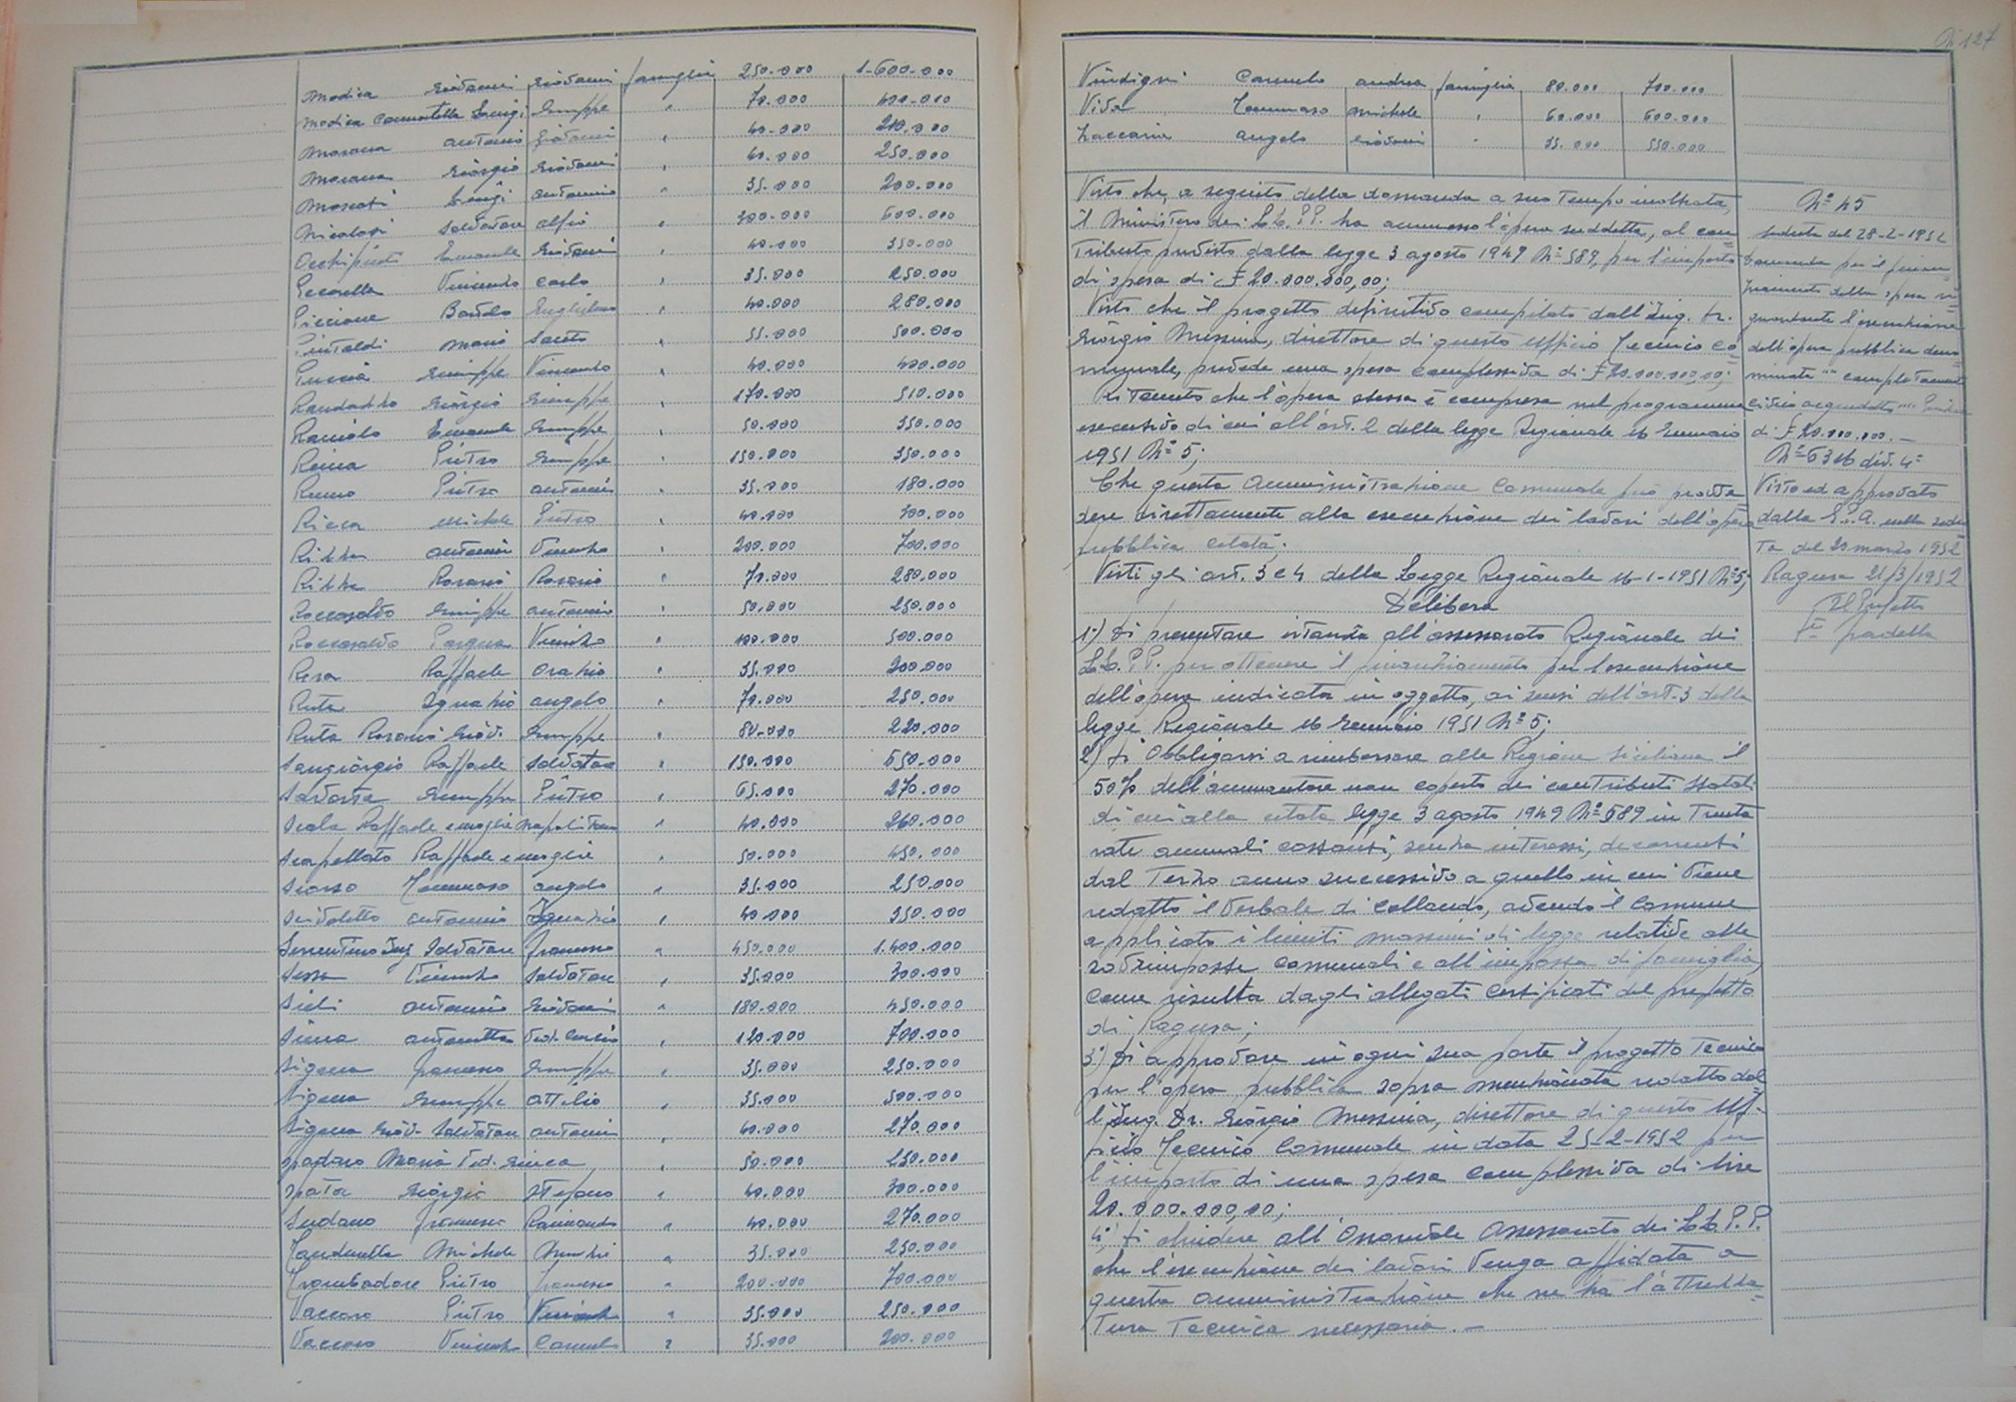 Modica Giovanni Giovanni famiglia 250.000 1.600.000
Modica Cannatella Luigi Giuseppe " 70.000 400.000
Morana Antonio Giovanni " 40.000 200.000
Morana Giorgio Giovanni " 40.000 250.000
Moscati Luigi Antonino " 35.000 200.000
Nicolosi Salvatore Alfio " 100.000 600.000
Occhipinti Emanuele Giovanni " 40.000 350.000
Vincenzo Carlo " 35.000 250.000
Piccione Bartolo Guglielmo " 40.000 280.000
Mario Santo " 55.000 500.000
Puccia Giuseppe Vincenzo " 40.000 400.000
Randazzo Giorgio Giuseppe " 170.000 510.000
Raniolo Emanuele Giuseppe " 50.000 350.000
Reina Pietro Giuseppe " 150.000 350.000
Pietro Antonio " 35.000 180.000
Ricca Michele Pietro " 40.000 300.000
Rizza Antonino Vincenzo " 200.000 700.000
Rizza Rosario Rosario " 70.000 280.000
Roccasalvo Giuseppe Antonino " 50.000 250.000
Roccasalvo Pasqua Vincenzo " 100.000 500.000
Rosa Raffaele Orazio " 35.000 200.000
Ruta Ignazio Angelo " 70.000 250.000
Ruta Rosario Giov. Giuseppe " 80.000 220.000
Sangiorgio Raffaele Salvatore " 150.000 650.000
Giuseppe Pietro " 65.000 270.000
Scala Raffaele e moglie Napolitano " 40.000 260.000
Scapellato Raffaele e moglie " 50.000 450.000
Tommaso Angelo " 35.000 250.000
Scivoletto Antonino Ignazio " 40.000 350.000
Sorrentino Ing. Salvatore Francesco " 450.000 1.400.000
Sessa Vincenzo Salvatore " 35.000 300.000
Antonino Giovanni " 180.000 450.000
Antonietta Ved. " 120.000 700.000
Sigona Francesco Giuseppe " 35.000 250.000
Sigona Giuseppe Attilio " 35.000 500.000
Sigona Giov. Salvatore Antonino " 40.000 270.000
Spadaro Maria Ved. " 50.000 250.000
Spata Giorgio Stefano " 40.000 300.000
Sudano Francesco Raimondo " 40.000 270.000
Michele " 35.000 250.000
Trombadore Pietro Francesco " 200.000 700.000
Vaccaro Pietro Vincenzo " 35.000 250.000
Vaccaro Vincenzo Carmelo " 35.000 200.000
127
Vindigni Carmelo Andrea famiglia 80.000 700.000
Vita Tommaso Michele " 60.000 600.000
Zaccaria Angelo Giovanni " 35.000 550.000
Visto che, a seguito della domanda a suo tempo inoltrata,
il Ministero dei LL. PP. ha ammesso l'opera suddetta, al con=
tributo previsto dalla legge 3 agosto 1949 N° 589, per l'importo
di spesa di £ 20.000.000,00;
Visto che il progetto definitivo compilato dall'Ing. Dr.
Giorgio Messina, direttore di questo Ufficio Tecnico Co=
munale, prevede una spesa complessiva di £ 20.000.000,00;
Ritenuto che l'opera stessa è compresa nel programma
esecutivo di cui all'art. 2 della legge Regionale 16 Gennaio
1951 N° 5;
Che questa Amministrazione Comunale può provve=
dere direttamente alla esecuzione dei lavori dell'opera
pubblica citata.
Visti gli art. 3 e 4 della Legge Regionale 16-1-1951 N° 5;
Delibera
1°) Di presentare istanza all'assessorato Regionale dei
LL. PP. per ottenere il finanziamento per l'esecuzione
dell'opera indicata in oggetto, ai sensi dell'art. 3 della
legge Regionale 16 Gennaio 1951 N° 5;
2°) Di obbligarsi a rimborsare alla Regione Siciliana il
50% dell'ammontare non coperto dai contributi statali
di cui alla citata legge 3 agosto 1949 N° 589 in trenta
rate annuali costanti, senza interessi, decorrenti
dal terzo anno successivo a quello in cui viene
redatto il verbale di collaudo, avendo il Comune
applicato i limiti massimi di legge relativi alle
sovrimposte comunali e all'imposta di famiglia,
come risulta dagli allegati certificati del prefetto
di Ragusa;
3°) Di approvare in ogni sua parte il progetto tecnico
per l'opera pubblica sopra menzionata redatto dal=
l'Ing. Dr. Giorgio Messina, direttore di questo Uf=
ficio Tecnico Comunale in data 25-2-1952 per
l'importo di una spesa complessiva di lire
20.000.000,00;
4°) Di chiedere all'Onorevole Assessorato dei LL. PP.
che l'esecuzione dei lavori venga affidata a
questa amministrazione che ne ha l'attrezza=
tura tecnica necessaria. —
N° 45
seduta del 28-2-1952
Domanda per il finan=
ziamento della spesa ri=
guardante l'esecuzione
dell'opera pubblica deno=
minata "" completamento
civico acquedotto
di £ 20.000.000. —
N° 6316 div. 4ª
Visto ed approvato
dalla G.P.A. nella sedu=
ta del 20 marzo 1952
Ragusa 21/3/1952
Il Prefetto